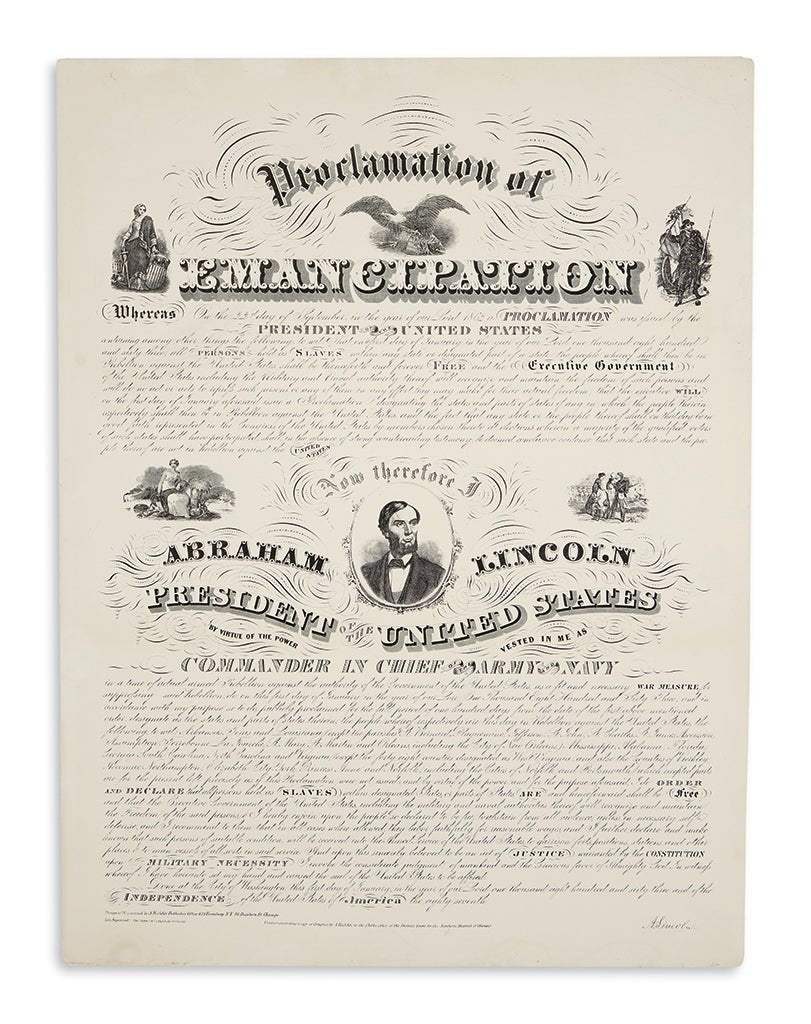 Proclamation of
EMANCIPATION
Whereas On the 22nd day of September, in the year of our Lord 1862 a PROCLAMATION was issued by the
PRESIDENT OF THE UNITED STATES
containing among other things the following to wit: That on the first day of January in the year of our Lord one thousand eight hundred
and sixty three, all PERSONS held as SLAVES within any state or designated part of a state the people whereof shall then be in
Rebellion against the United States shall be thenceforth and forever FREE and the Executive Government
of the United States including the Military and Naval authority thereof will recognize and maintain the freedom of such persons and
will do no act or acts to repress such persons or any of them in any effort they may make for their actual freedom that the executive WILL
on the first day of January aforesaid issue a Proclamation designating the states and parts of states if any in which the people therein
respectively shall then be in Rebellion against the United States and the fact that any state or the people thereof shall on that day be in
good faith represented in the Congress of the United States by members chosen thereto at elections wherein a majority of the qualified voters
of such states shall have participated shall in the absence of strong countervailing testimony be deemed conclusive evidence that such state and the peo-
ple thereof are not in Rebellion against the UNITED STATES
Now therefore I
ABRAHAM LINCOLN
PRESIDENT OF THE UNITED STATES
BY VIRTUE OF THE POWER VESTED IN ME AS
COMMANDER IN CHIEF OF THE ARMY AND NAVY
in a time of actual armed Rebellion against the authority of the Government of the United States as a fit and necessary WAR MEASURE for
suppressing said rebellion do on this first day of January in the year of our Lord One Thousand Eight Hundred and Sixty Three, and in
accordance with my purpose so to do publicly proclaimed for the full period of one hundred days from the date of the first above mentioned
order designate as the states and parts of states therein the people whereof respectively are this day in Rebellion against the United States, the
following to wit: Arkansas, Texas and Louisiana (except the parishes of St Bernard, Plaquemine, Jefferson, St. John, St. Charles, St. James, Ascension,
Assumption, Terrebonne, La Fourche, St. Mary, St. Martin and Orleans, including the City of New Orleans), Mississippi, Alabama, Florida,
Georgia, South Carolina, North Carolina and Virginia, (except the forty eight counties designated as West Virginia, and also the Counties of Berkley,
Accomac, Northampton, Elizabeth City, York, Princess Anne and Norfolk, including the Cities of Norfolk and Portsmouth) which excepted parts
are for the present left precisely as if this Proclamation were not issued; and by virtue of the power and for the purpose aforesaid I do ORDER
AND DECLARE that all persons held as SLAVES within designated States, or parts of States ARE and henceforward shall be Free
and that the Executive Government of the United States, including the military and naval authorities thereof, will recognize and maintain
the Freedom of the said persons & I hereby enjoin upon the people so declared to be free to abstain from all violence, unless in necessary self-
defense, and I recommend to them that in all cases where allowed, they labor faithfully for reasonable wages, and I further declare and make
known that such persons of suitable condition will be received into the Armed Service of the United States to garrison forts, positions, stations and other
places & to man vessels of all sorts in said service. And upon this sincerely believed to be an act of JUSTICE warranted by the CONSTITUTION
upon MILITARY NECESSITY I invoke the considerate judgment of mankind and the Gracious favor of Almighty God. In witness
whereof I have hereunto set my hand and caused the seal of the United States to be affixed.
Done at the City of Washington, this first day of January, in the year of our Lord one thousand eight hundred and sixty three and of the
INDEPENDENCE of the United States of America the eighty seventh
A. Lincoln.